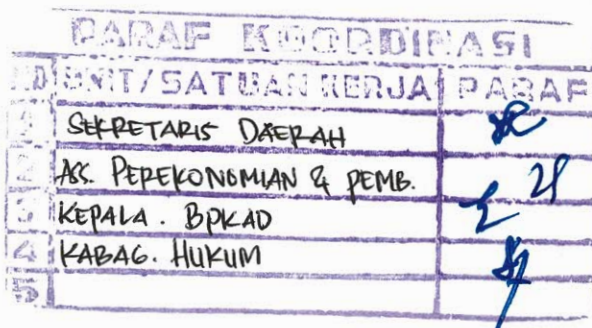 PARAF KOORDINASI
NO UNIT/SATUAN KERJA PARAF
1 SEKRETARIS DAERAH
2 ASS. PEREKONOMIAN & PEMB.
3 KEPALA. BPKAD
4 KABAG. HUKUM
5